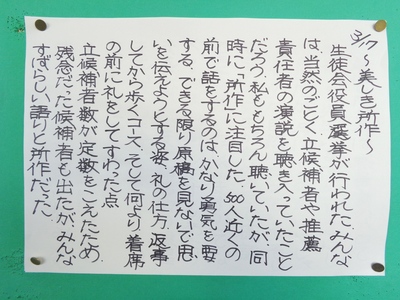 3/17 〜美しき所作〜
生徒会役員選挙が行われた。みんな
は、当然のごとく立候補者や推薦
責任者の演説を聴き入っていたこと
だろう。私ももちろん聴いていたが、同
時に「所作」に注目した。500人近くの
前で話をするのはかなり勇気を要
する。できる限り原稿を見ないで思
いを伝えようとする姿、礼の仕方、返事
してから歩くコース、そして何より着席
の前に礼をしてすわった点。
立候補者数が定数をこえたため、
残念だった候補者も出たが、みんな
すばらしい語りと所作だった。